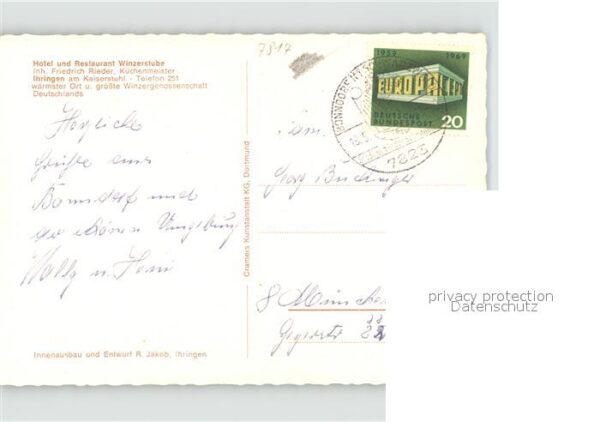 7817
Hotel und Restaurant Winzerstube
Inh. Friedrich Rieder, Küchenmeister
Ihringen am Kaiserstuhl - Telefon 251
wärmster Ort u. größte Winzergenossenschaft
Deutschlands
Herzliche
Grüße aus
Bonndorf und
der schönen Umgebung
Wally u.
Innenausbau und Entwurf R. Jakob, Ihringen
Cramers Kunstanstalt KG, Dortmund
BONNDORF
7823
1959 1969
EUROPA CEPT
DEUTSCHE
BUNDESPOST 20
Fam.
Georg
8 München
privacy protection
Datenschutz